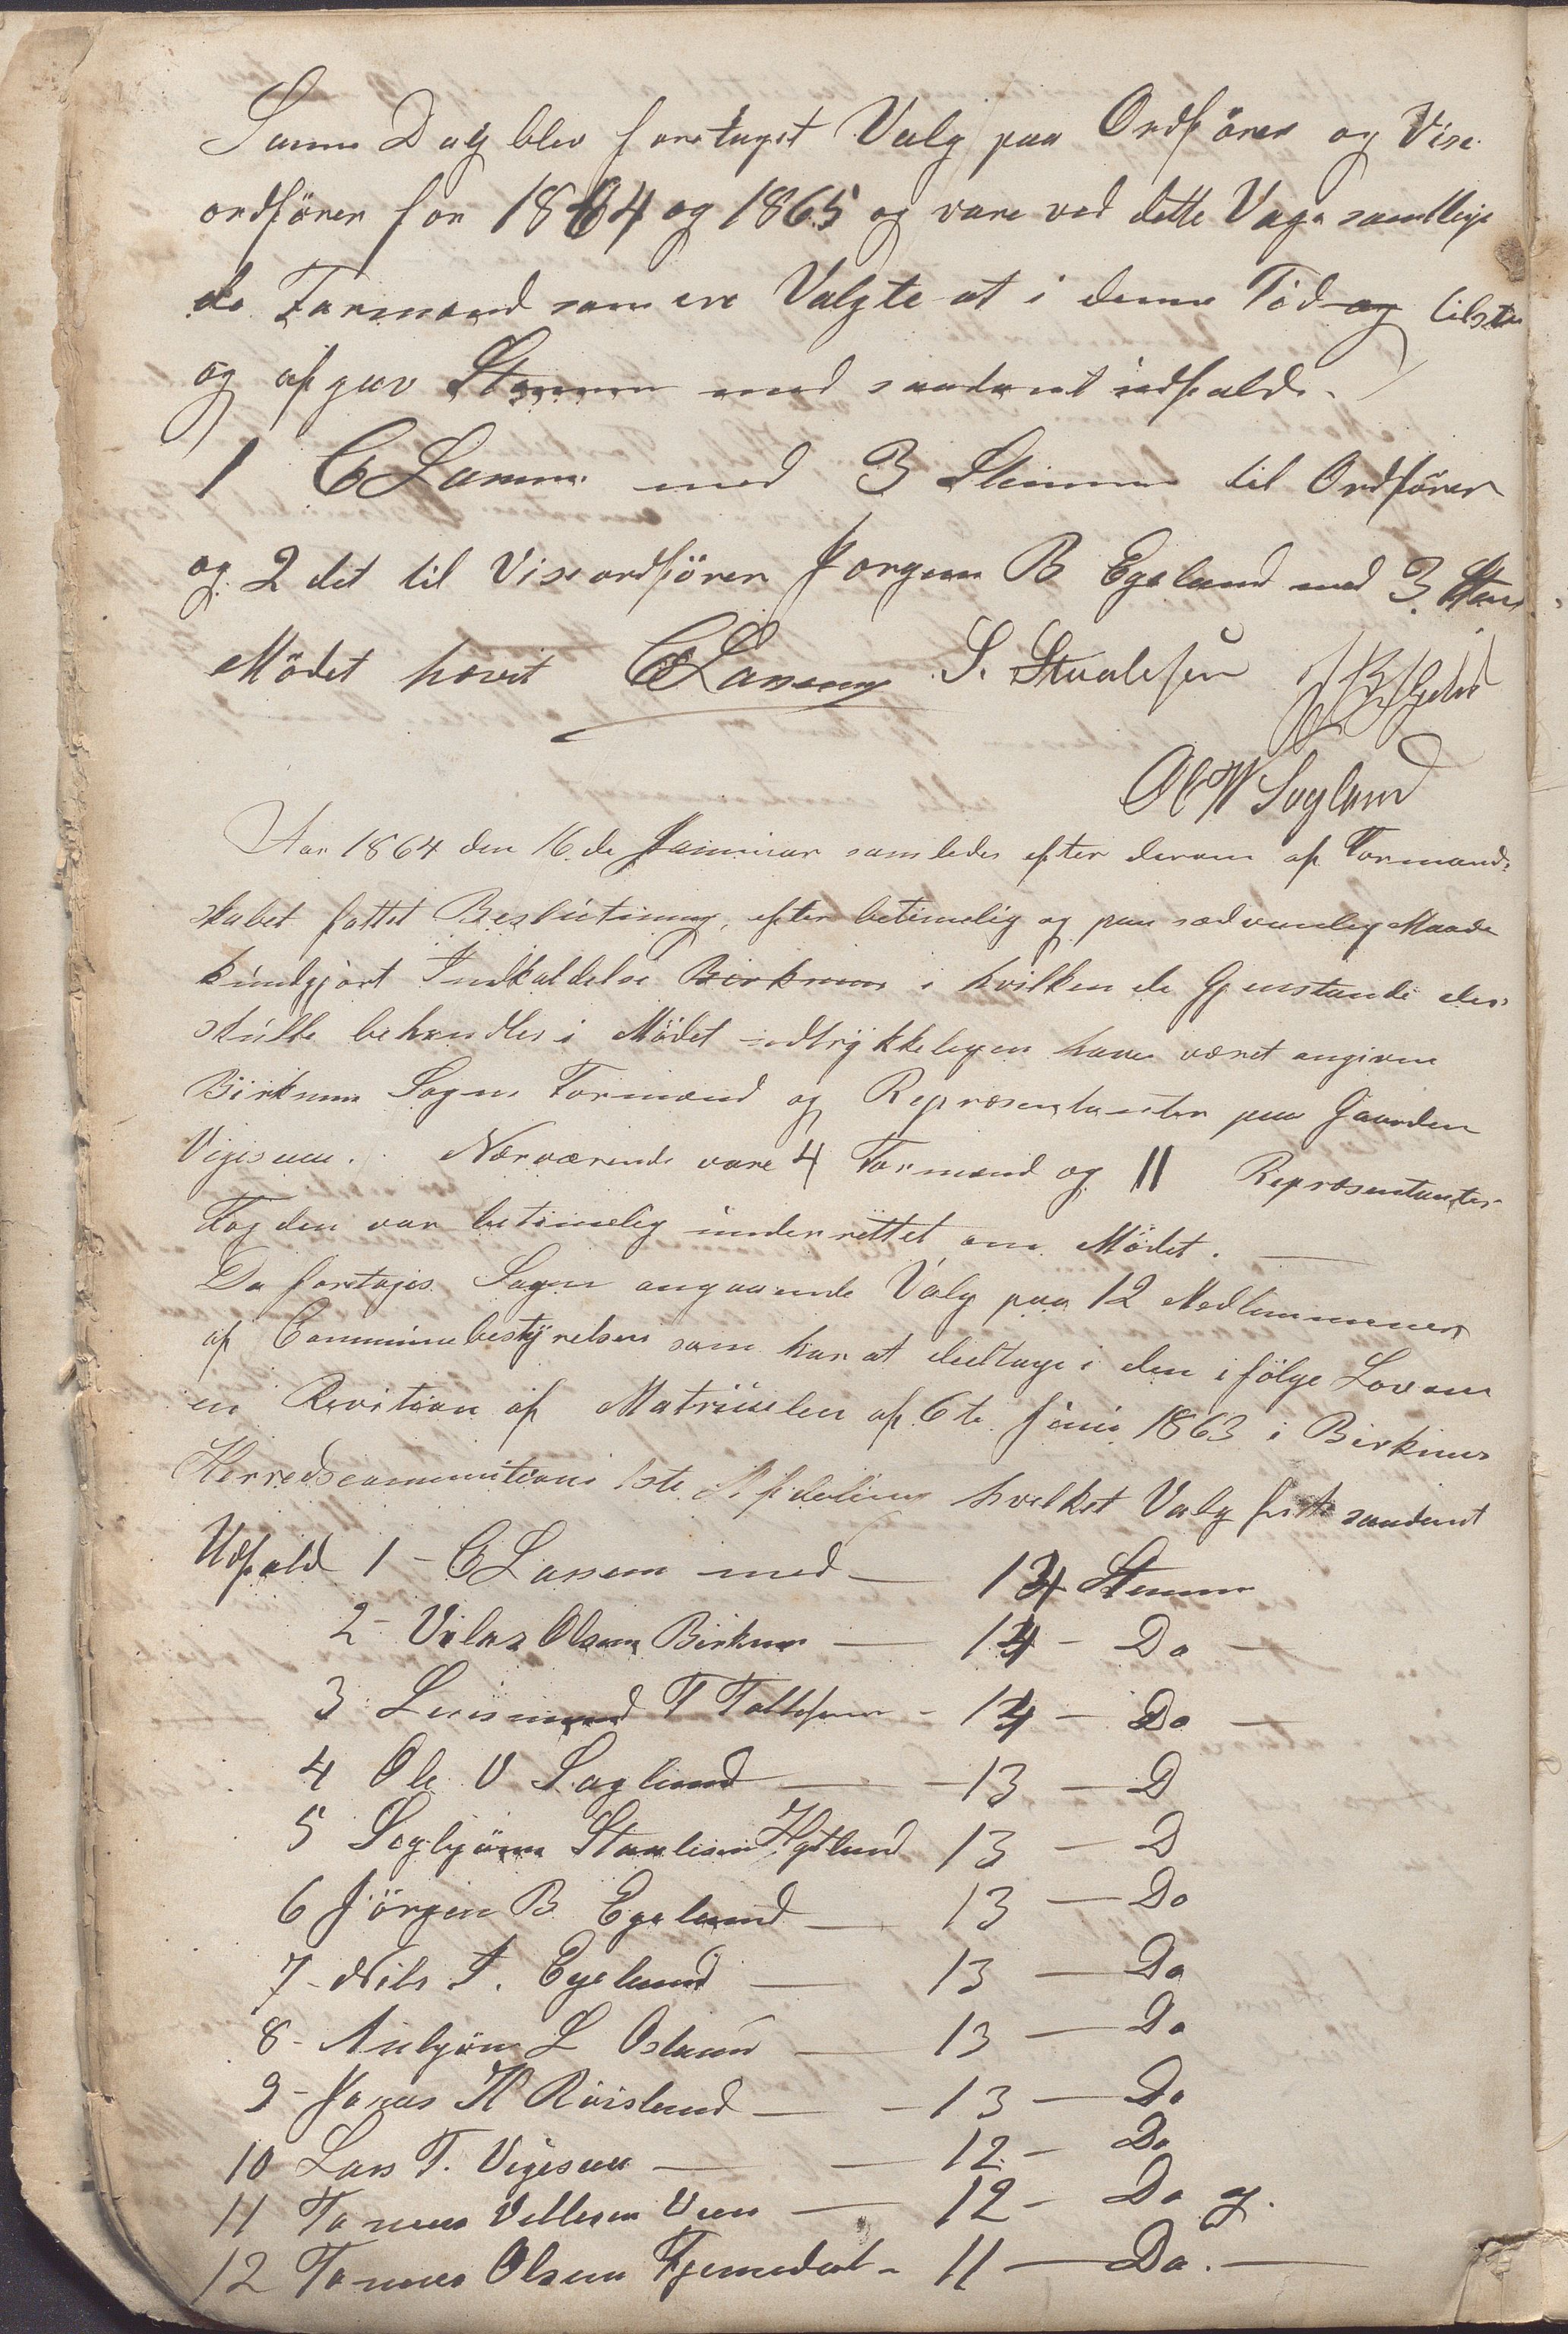 Samme Dag blev foretaget Valg paa Ordförer og Vise
ordförer for 1864 og 1865 og vare ved dette Vaga samtlige
de Formænd som ere Valgte at i denne Tid og tilste
og afgav Stemmer med saadant udfald.
1 C Lassen med 3 Stemmer til Ordförer
og 2det til Viseordförer Jorgen B Egeland med 3 Stem
Mödet hævet C Lassen S. Staalesen JBEgeland
Ol W Sogland
Aar 1864 den 16de Januar samledes efter derom af Formand-
skabet fattet Beslutning, efter betimelig og paa sædvanlig Maade
kundgjort Indkaldelse Birkrem i hvilken de Gjenstande der
skulle behandles i Mödet udtrykkeligen have været angivne
Birkrem Sogns Formænd og Repræsentanter paa Gaarden
Vigesaa. Nærværende vare 4 Formænd og 11 Repræsentanter
Fogden var betimelig underrettet om Mödet.
Da foretoges Sagen angaaende Valg paa 12 Medlemmer
af Communebestyrelsen som har at deeltage i den ifölge Lov om
en Revition af Matriculen af 6te Juni 1863 i Birkrems
Herredscommitions 1ste Afdeling hvilket Valg fik saadant
Udfald 1 - C Lassen med - 14 Stemmer
2 - Valas Olsen Birkrem - 14 - Do -
3 Lusmund T Tollefsen - 14 - Do -
4 Ole V Sagland - 13 - D
5 Sigbjörn Staalesen Hytland 13 - D
6 Jörgen B Egeland - 13 - Do
7 - Nils T. Egeland - 13 - Do
8 - Asbjörn L Osland - 13 - Do
9 - Jonas H Röisland - 13 - Do
10 Lars T. Vigesaa - 12 - Do
11 Tonnes Vellesen Veen - 12 - Do og
12 Tonnes Olsen Fjermedal - 11 - Do. -